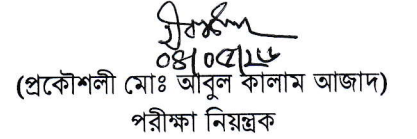 ০৪/০৫/২৬
(প্রকৌশলী মোঃ আবুল কালাম আজাদ)
পরীক্ষা নিয়ন্ত্রক